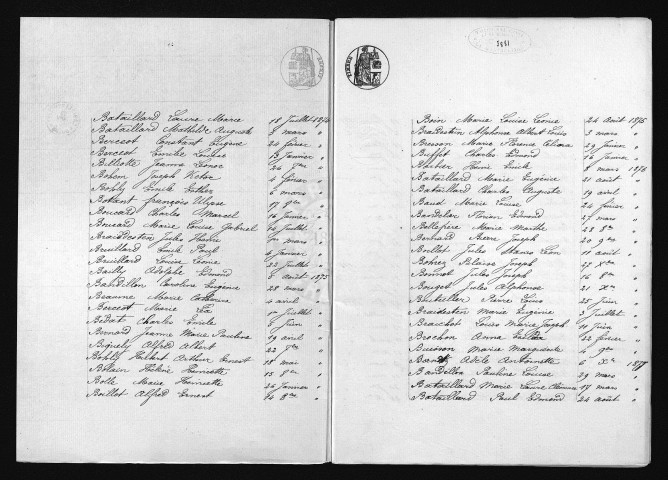 Bataillard Laure Marie 18 Juillet 1874
Bataillard Mathilde Auguste 9 mars "
Bercot Constant Eugène 24 février "
Bercot Emile Louise 13 Janvier "
Billotte Jeanne 26 "
Bohem Joseph Victor 4 février "
Bohly Emile Esther 6 mars "
Botant françois Ulysse 17 "
Boucard Charles Marcel 16 février "
Boucard Marie Louise Gabriel 14 Juillet "
Braidestin Jules Henri mars "
Bruillard Emile Paul 4 Janvier "
Bruillard Louise Leonie 22 Juillet "
Bailly Adolphe Edmond 8 août 1875
Bardillon Caroline Eugénie 28 mars "
Beaume Marie Catherine 4 avril "
Bercot Marie Juillet "
Bédat Charles Emile Juin "
Bernard Jeanne Marie Pauline 19 avril "
Biguely Alfred Albert 22 "
Bohly Hubert Arthur Ernest 18 mai "
Bolain Helène Henriette 15 "
Bolle Marie Henriette 26 Janvier "
Boillot Alfred Ernest 14 "
Boin Marie Louise Leonie 24 août 1875
Braidestin Alphonse Albert Louis 3 mars "
Bresson Marie Florence Celima 29 Janvier "
Buffet Charles Edmond 16 février "
Henri Emile 8 mars 1876
Bataillard Marie Eugénie 10 août "
Bataillard Charles Auguste 19 avril "
Baud Marie Louise 24 février "
Bardelier Florian Edmond 27 mars "
Bellefire Marie Marthe 28 "
Bernard Pierre Joseph 20 "
Boillot Jules Stanis Léon 11 août "
Bohrer Pelagie Joseph 28 "
Bonnet Jules Joseph 16 "
Bouget Jules Alphonse 21 "
Bouteiller Pierre Louis 25 Juin "
Braidestin Marie Eugénie 3 Juillet "
Brauchot Louis Marie Joseph 11 Juin "
Brochon Anna 22 février "
Buisson Marie Marguerite 4 "
Adèle Antoinette 6 1877
Bardillon Pauline Louise 29 mars "
Bataillard Marie Laure Clemence 17 mars "
Bataillard Paul Edmond 24 août "